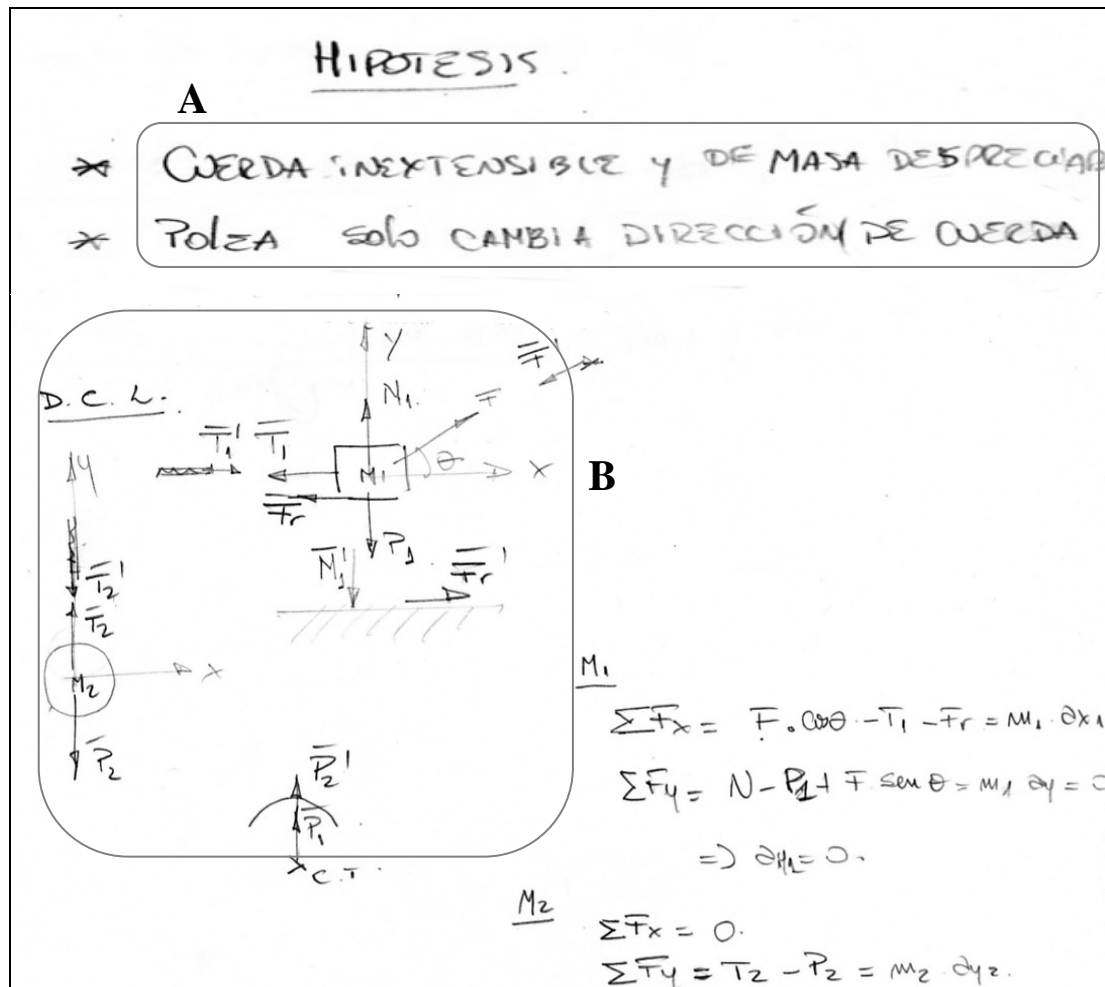 HIPOTESIS.
A
* CUERDA INEXTENSIBLE Y DE MASA DESPRECIAB
* POLEA SOLO CAMBIA DIRECCIÓN DE CUERDA
D.C.L.
Y
N₁
F̅'
F̅
T̅₁' T̅₁
M₁
θ
X
B
F̅r
P₁
y
N̅₁'
F̅r'
T̅₂'
T̅₂
M₂
X
P̅₂
P̅₂'
P̅₁
C.T.
M₁
ΣF̅x = F̅.cosθ - T̅₁ - F̅r = m₁. ax₁
ΣF̅y = N - P₁ + F̅ sen θ = m₁ ay = 0
=> ay₁ = 0.
M₂
ΣF̅x = 0.
ΣF̅y = T₂ - P̅₂ = m₂. ay₂.